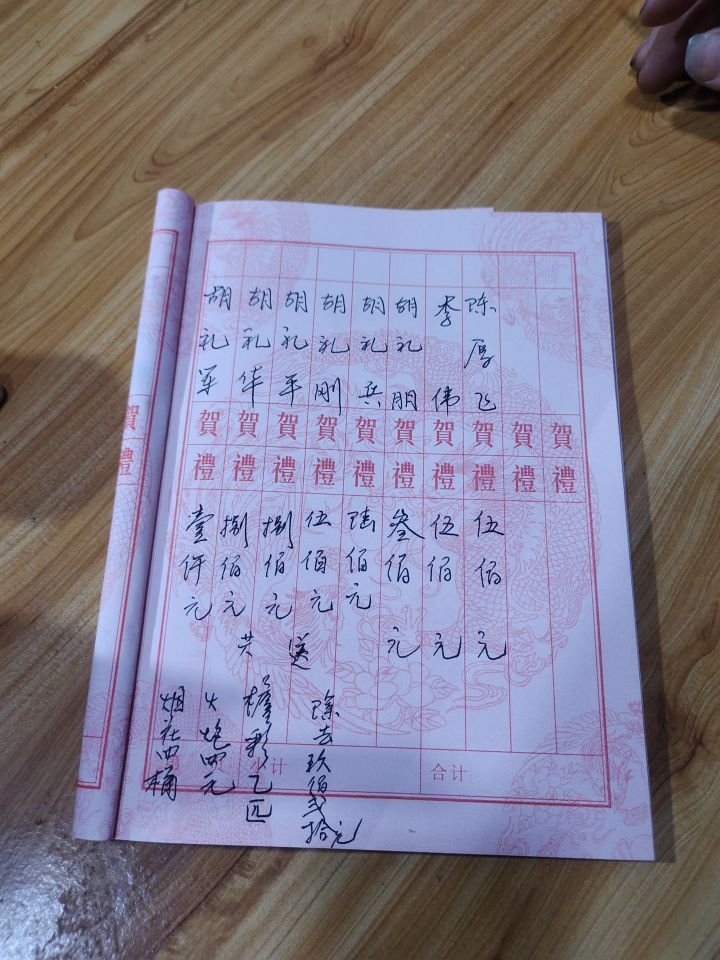 胡礼军
胡礼华
胡礼平
胡礼刚
胡礼兵
胡礼朋
李伟
陈厚飞
賀禮
賀禮
賀禮
賀禮
賀禮
賀禮
賀禮
賀禮
賀禮
賀禮
壹仟元
捌佰元
捌佰元
伍佰元
陆佰元
叁佰元
伍佰元
伍佰元
共送
烟花四桶
火炮四元
彩乙匹
除去玖佰弍拾元
计
合计
賀禮